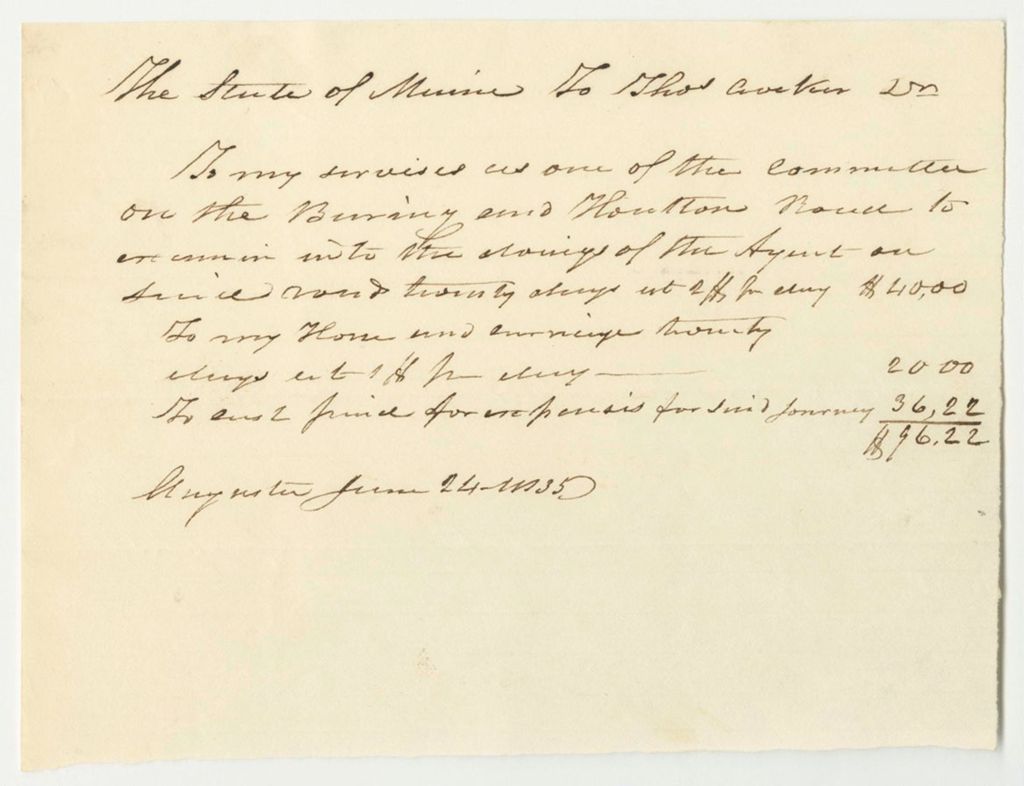 The State of Maine To Thos Crocker Dr
To my servises as one of the Committee
on the Baring and Houlton Road to
examin into the doings of the Agent on
said road twenty days at 2$ pr day $40,00
To my Horse and carriage twenty
days at 1$ pr day 20 00
To cash paid for expensis for said journey 36,22
$96.22
Augusta June 24-1835